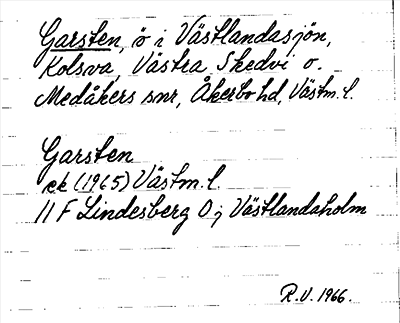 Garsten, ö i Västlandasjön,
Kolsva, Västra Skedvi o.
Medåkers snr, Åkerbo hd, Västm. l.
Garsten
ek (1965) Västm. l.
11 F Lindesberg O; Västlandaholm
R.V. 1966.